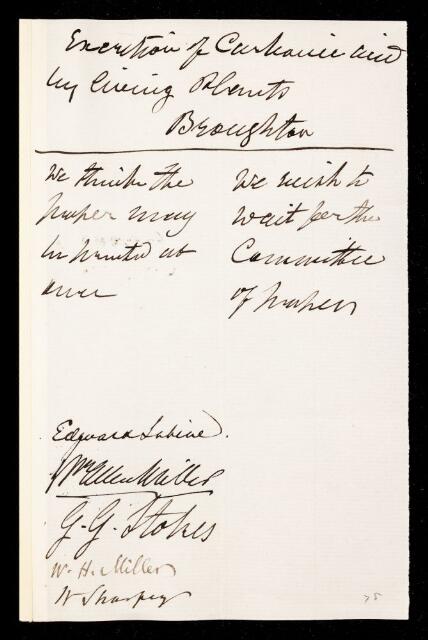 Excretion of Carbonic acid
by living Plants
Broughton
We think the
paper may
be printed at
once
We wish to
wait for the
Committee
of papers
Edward Sabine.
Wm Allen Miller
G. G. Stokes
W. H. Miller
W Sharpey